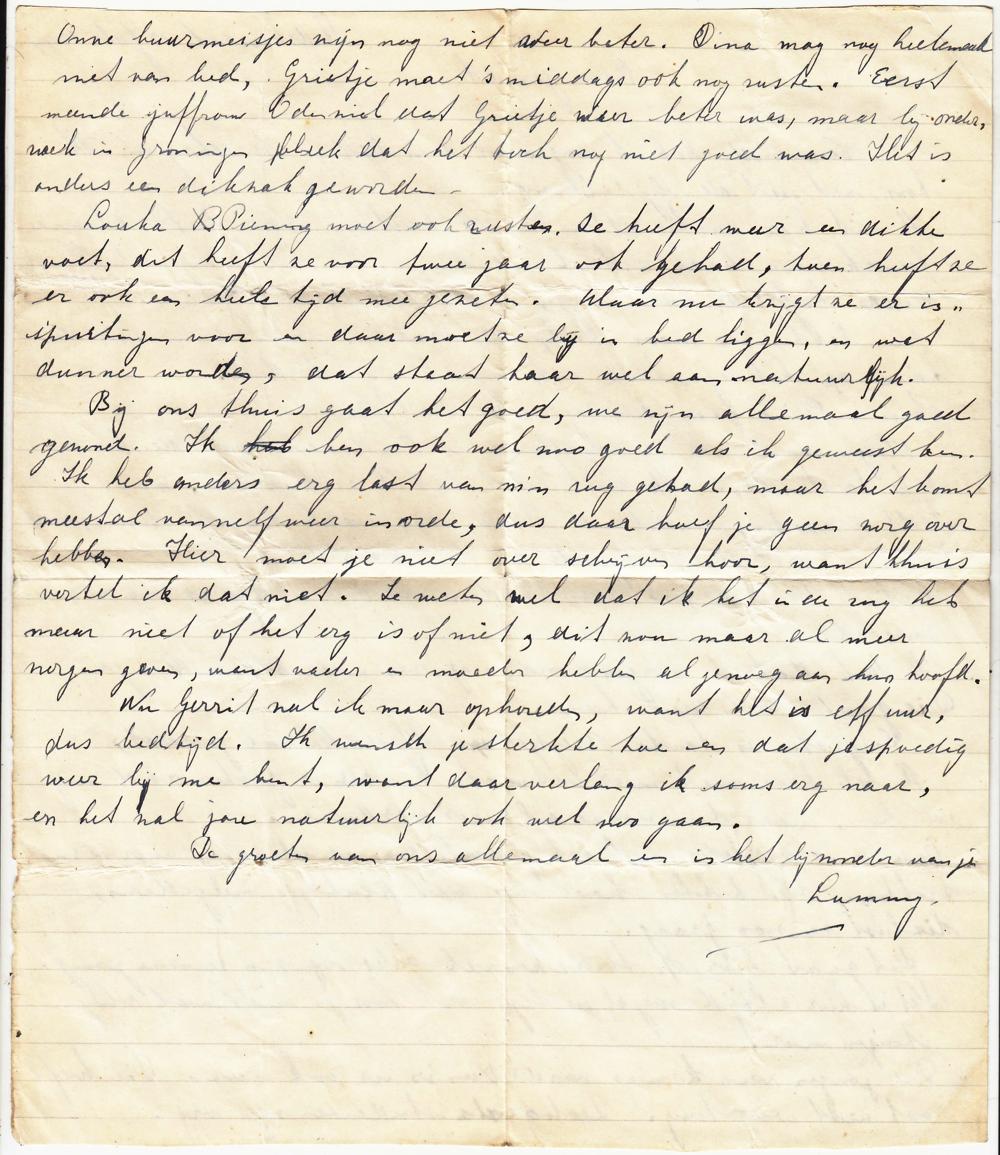 Onze buurmeisjes zijn nog niet weer beter. Dina mag nog heelemaal
niet van bed, Grietje moet 's middags ook nog rusten. Eerst
meende juffrouw dat Grietje weer beter was, maar bij onder,
zoek in Groningen bleek dat het toch nog niet goed was. Het is
anders een dikzak geworden -
Louka B Piening moet ook rusten. Ze heeft weer een dikke
voet, dit heeft ze voor twee jaar ook gehad, toen heeft ze
er ook een heele tijd mee gezeten. Maar nu krijgt ze er is„
spuitingen voor en daar moet ze bij in bed liggen, en wat
dunner worden, dat staat haar wel aan natuurlijk.
Bij ons thuis gaat het goed, we zijn allemaal goed
gezond. Ik heb ben ook wel zoo goed als ik geweest ben.
Ik heb anders erg last van m'n rug gehad, maar het komt
meestal vanzelf weer in orde, dus daar hoef je geen zorg over
hebben. Hier moet je niet over schrijven hoor, want thuis
vertel ik dat niet. Ze weten wel dat ik het in de rug heb
maar niet of het erg is of niet, dit zou maar al meer
zorgen geven, want vader en moeder hebben al genoeg aan hun hoofd.
Nu Gerrit zal ik maar ophouden, want het is elf uur,
dus bedtijd. Ik wensch je sterkte toe en dat je spoedig
weer bij me bent, want daar verlang ik soms erg naar,
en het zal jou natuurlijk ook wel zoo gaan.
De groeten van ons allemaal en in het bijzonder van je
Lammy.